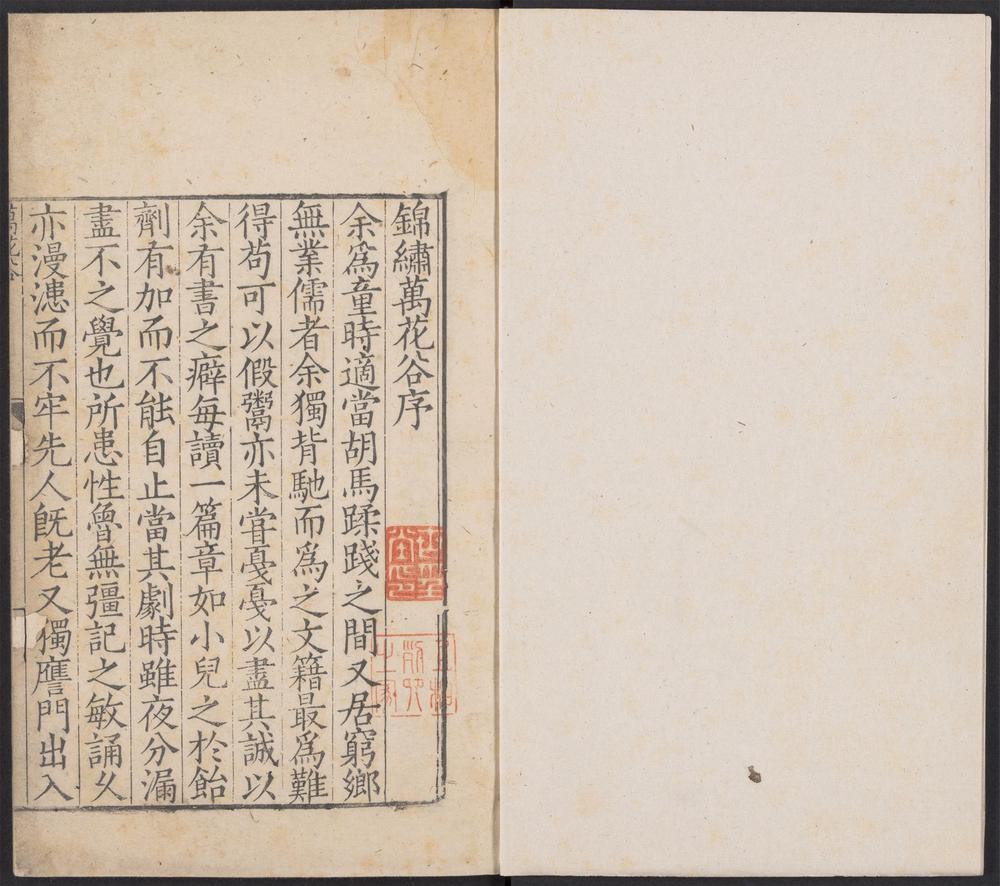 錦繡萬花谷序
余爲童時適當胡馬蹂踐之間又居窮鄉
無業儒者余獨背馳而爲之文籍最爲難
得苟可以假鬻亦未甞戞戞以盡其誠以
余有書之癖每讀一篇章如小兒之於飴
劑有加而不能自止當其劇時雖夜分漏
盡不之覺也所患性魯無彊記之敏誦乆
亦漫漶而不牢先人旣老又獨譍門出入
萬花谷